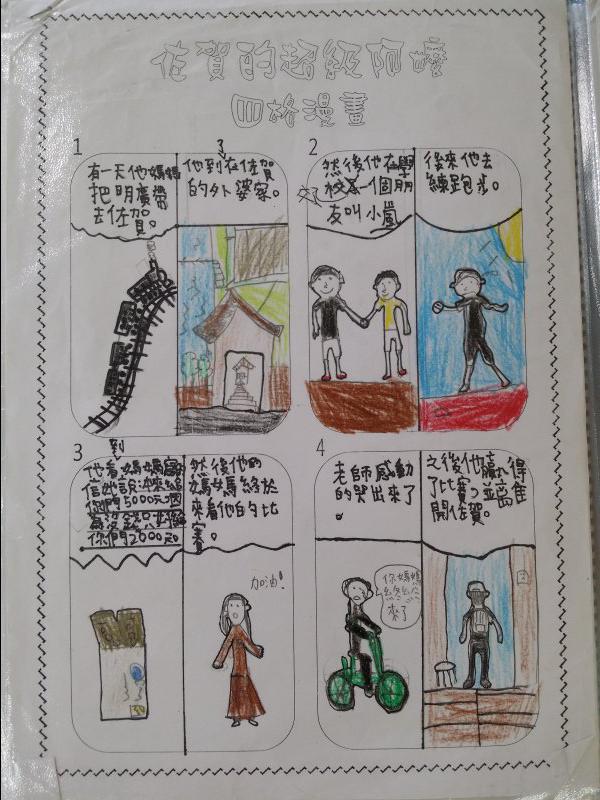 佐賀的超級阿嬤
四格漫畫
1
有一天他媽媽
把明廣帶
去佐賀。
他到在佐賀
的外婆家。
2
然後他在學
校交了一個朋
友叫小嵐
後來他去
練跑步。
3
到
他看媽媽寫
信說:本來給
你們5000元,因
為沒錢只
你們2000元
然後他的
媽媽終於
來看他的比
賽。
加油!
4
老師感動
的哭出來了
。
你媽媽
終於
來了
之後他贏得
了比賽,並離
開佐賀。